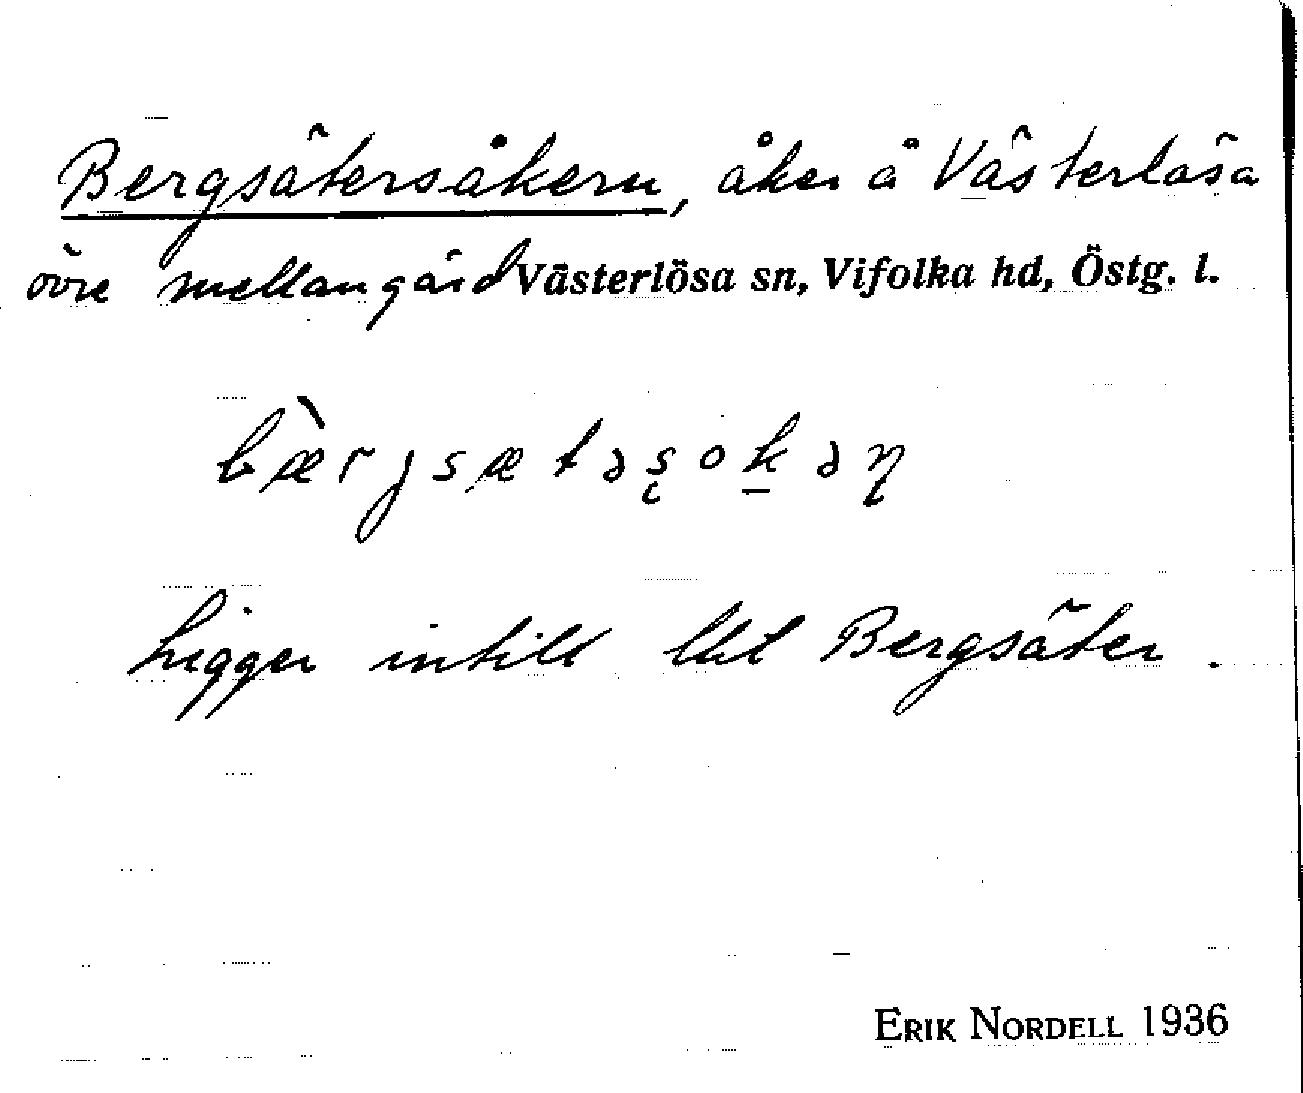 Bergsätersåkern, åker å Västerlösa
övre mellangård Västerlösa sn, Vifolka hd, Östg. l.
bæ̀rjsætəşokəη
Ligger intill lht Bergsäter.
ERIK NORDELL 1936